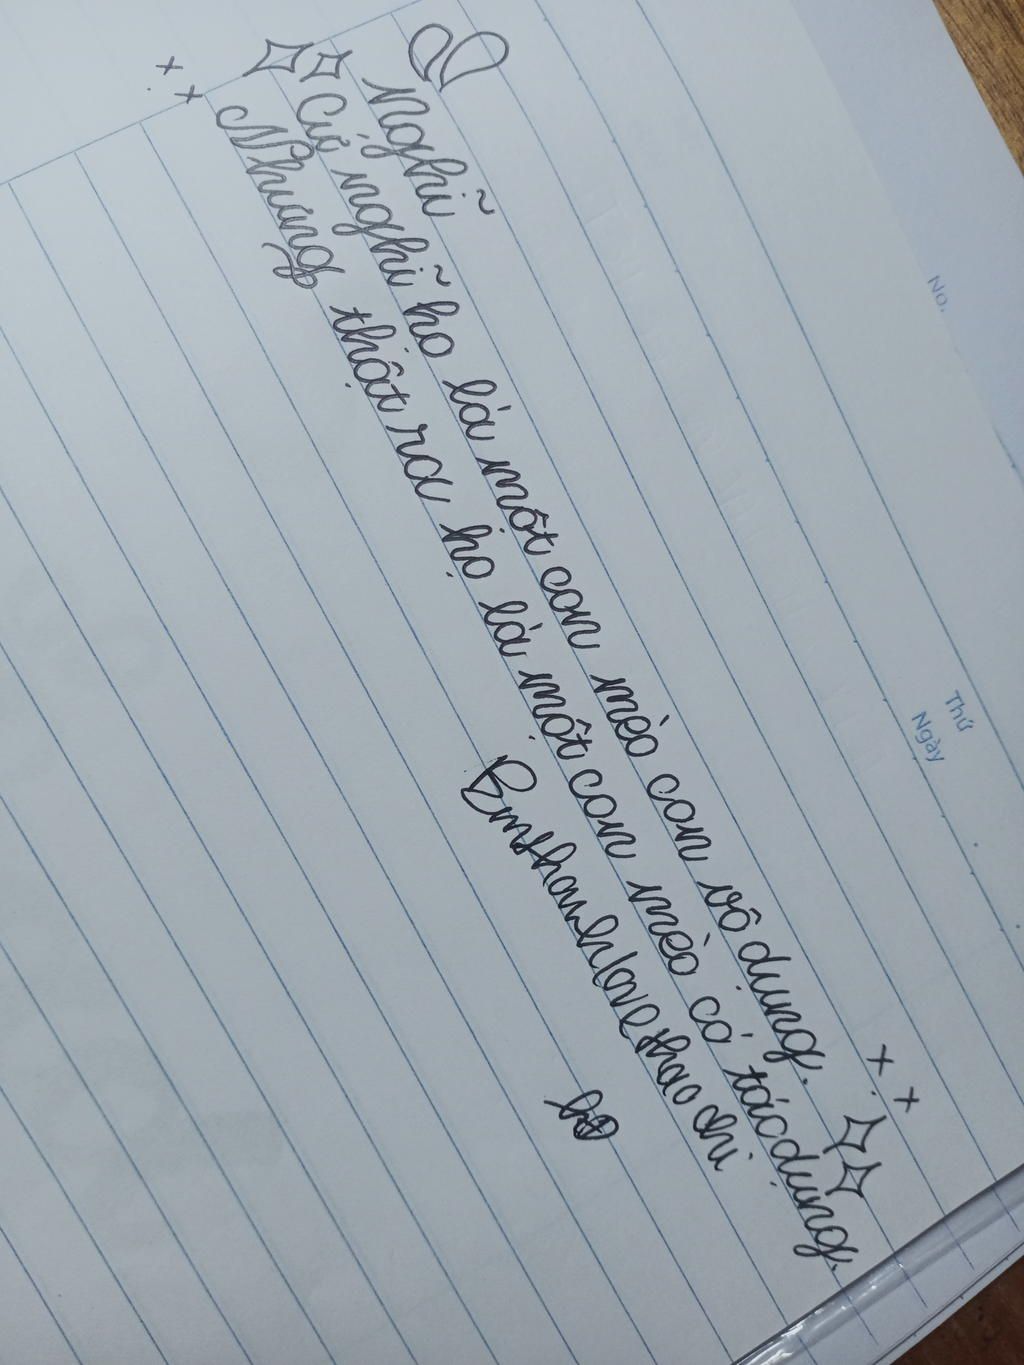 No.
Thứ
Ngày
Nghĩ
Cứ nghĩ họ là một con mèo con vô dụng.
Nhưng thật ra họ là một con mèo có tác dụng.